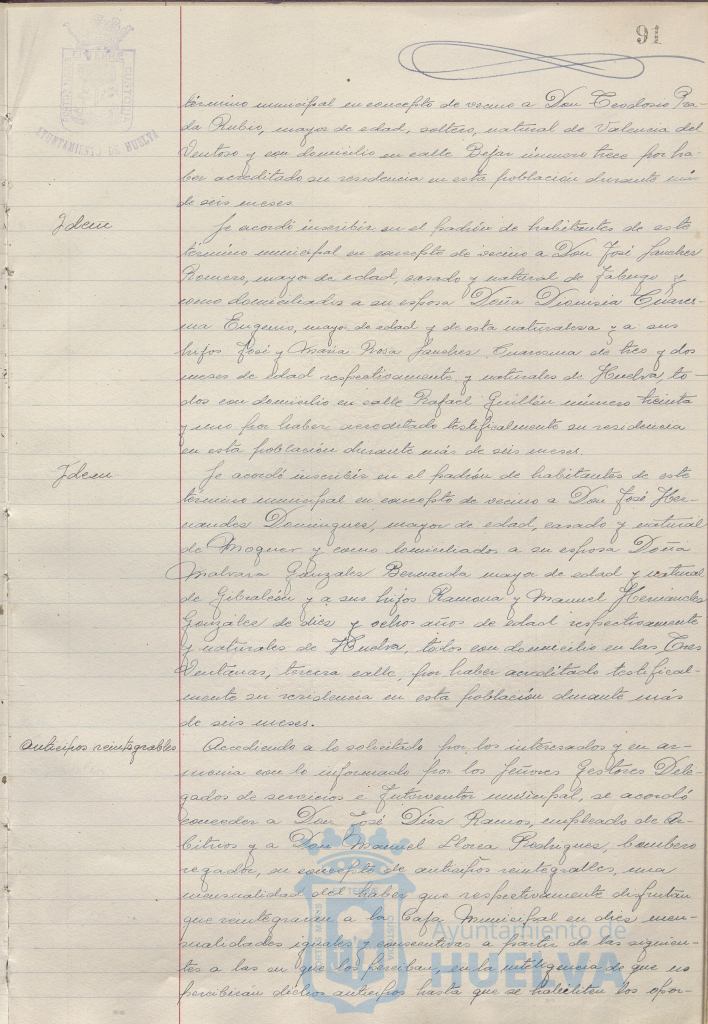 91
AYUNTAMIENTO DE HUELVA
término municipal en concepto de vecino a Don Teodosio Ra-
da Rubio, mayor de edad, soltero, natural de Valencia del
Ventoso y con domicilio en calle Bejar número trece por ha-
ber acreditado su residencia en esta población durante más
de seis meses.
Idem
Se acordó inscribir en el padrón de habitantes de este
término municipal en concepto de vecino a Don José Sanchez
Romero, mayor de edad, casado y natural de Jabugo y
como domiciliados a su esposa Doña Dionisia Cuares-
ma Eugenio, mayor de edad y de esta naturaleza y a sus
hijos José y Maria Rosa Sanchez Cuaresma de tres y dos
meses de edad respectivamente y naturales de Huelva, to-
dos con domicilio en calle Rafael Guillén número treinta
y uno por haber acreditado testificalmente su residencia
en esta población durante más de seis meses.
Idem
Se acordó inscribir en el padrón de habitantes de este
término municipal en concepto de vecino a Don José Her-
nandez Dominguez, mayor de edad, casado y natural
de Moguer y como domiciliados a su esposa Doña
Gonzalez Bernarda mayor de edad y natural
de Gibraleón y a sus hijos Ramona y Manuel Hernandez
Gonzalez de diez y ocho años de edad respectivamente
y naturales de Huelva, todos con domicilio en las Tres
Ventanas, tercera calle, por haber acreditado testifical-
mente su residencia en esta población durante más
de seis meses.
Anticipos reintegrables
Accediendo a lo solicitado por los interesados y en ar-
monia con lo informado por los Señores Gestores Dele-
gados de servicios e Interventor municipal, se acordó
conceder a Don José Diaz Ramos, empleado de Ar-
bitrios y a Don Manuel Llorca Rodriguez, bombero
regador, en concepto de anticipos reintegrables, una
mensualidad del haber que respectivamente disfrutan
que reintegrarán a la Caja Municipal en diez men-
sualidades iguales y consecutivas a partir de las siguien-
tes a las en que los perciban, en la inteligencia de que no
percibirán dichos anticipos hasta que se habiliten los opor-
Ayuntamiento de
HUELVA